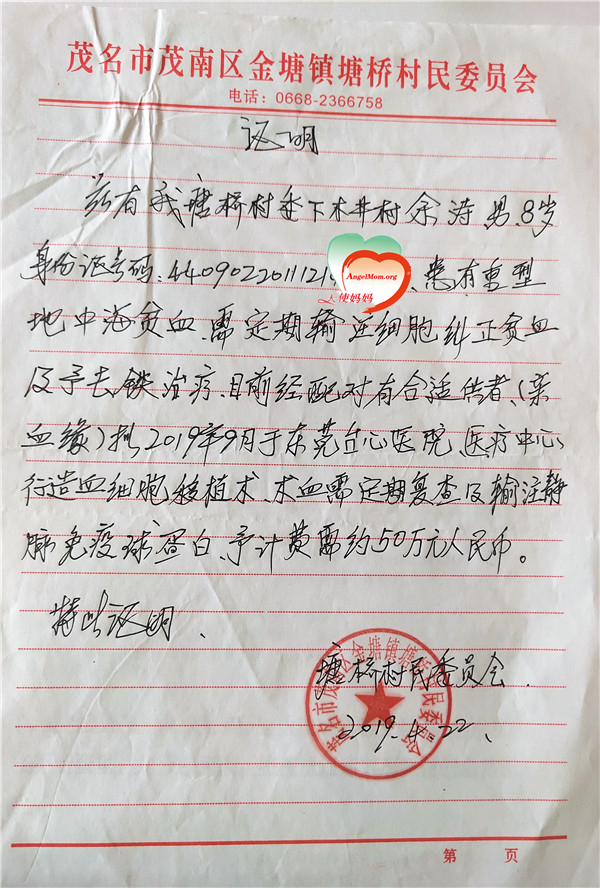 茂名市茂南区金塘镇塘桥村民委员会
电话：0668-2366758
证明
兹有我塘桥村委下木井村余涛男、8岁
身份证号码：44090220111219
AngelMom.org
天使妈妈
、患有重型
地中海贫血、需定期输红细胞纠正贫血
及予去铁治疗、目前经配对有合适供者、(亲
血缘)拟2019年9月于东莞台心医院、医疗中心
行造血细胞移植术、术血需定期复查及输注静
脉免疫球蛋白、予计费需约50万元人民币。
特此证明、
塘桥村民委员会
2019.4.22、
茂名市茂南区金塘镇塘桥村民委员会
第 页